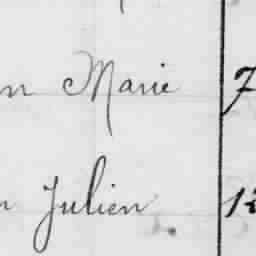 n Marie 7
n Julien 12